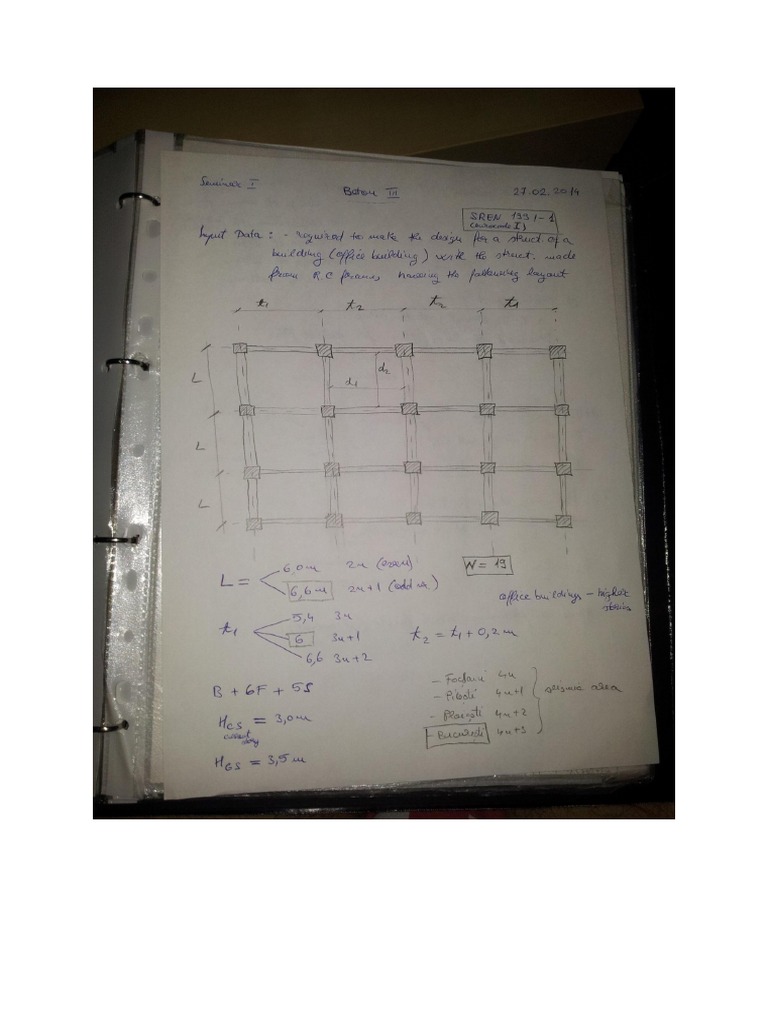 Seminar I
Beton III
27.02.2014
SREN 1991-1
(Eurocode I)
Input Data: - required to make the design for a struct of a
building (office building) with the struct. made
from R.C frames, having the following layout
t1 t2 t2 t1
L
d1 d2
L
L
L = 6,0m 2n (even)
6,6m 2n+1 (odd nr.)
N = 19
office buildings - higher
t1 5,4 3n
6 3n+1
6,6 3n+2
t2 = t1 + 0,2m
B + 6F + 5S
- Focșani 4n
- Pitești 4n+1
- Ploiești 4n+2
- București 4n+3
seismic area
HCS = 3,0m
current
story
HGS = 3,5m